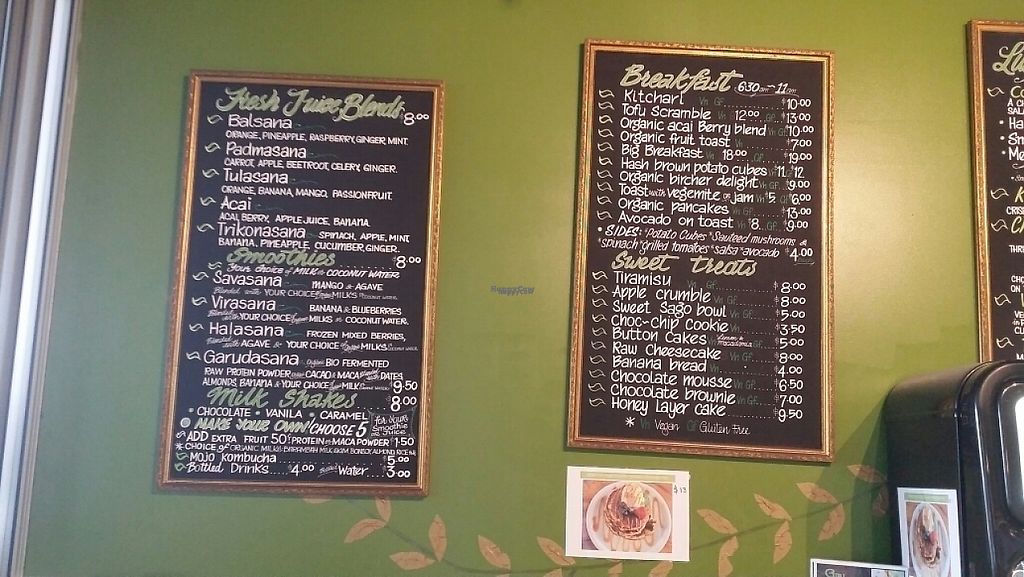 Fresh Juice Blends $8.00
Balsana
ORANGE, PINEAPPLE, RASPBERRY, GINGER, MINT.
Padmasana
CARROT, APPLE, BEETROOT, CELERY, GINGER.
Tulasana
ORANGE, BANANA, MANGO, PASSIONFRUIT.
Acai
ACAI BERRY, APPLE JUICE, BANANA.
Trikonasana SPINACH, APPLE, MINT
BANANA, PINEAPPLE, CUCUMBER, GINGER.
Smoothies $8.00
Your choice of MILK or COCONUT WATER.
Savasana MANGO & AGAVE
Blended with YOUR CHOICE MILKS COCONUT WATER.
Virasana BANANA & BLUEBERRIES
Blended with YOUR CHOICE MILKS or COCONUT WATER.
Halasana FROZEN MIXED BERRIES,
Blended with AGAVE & YOUR CHOICE of MILKS COCONUT WATER
Garudasana BIO FERMENTED
RAW PROTEIN POWDER CACAO & MACA DATES
ALMONDS, BANANA & YOUR CHOICE MILK 9.50
Milk Shakes 8.00
• CHOCOLATE • VANILA • CARAMEL
MAKE YOUR OWN CHOOSE 5 for your Smoothie or Juice
ADD EXTRA FRUIT 50¢ PROTEIN or MACA POWDER $1.50
* CHOICE of ORGANIC MILKS
Mojo Kombucha $5.00
Bottled Drinks 4.00 Water 3.00
Breakfast 630am - 11am
Kitchari Vn GF $10.00
Tofu Scramble Vn 12.00 GF $13.00
Organic acai Berry blend Vn GF $10.00
Organic fruit toast Vn $7.00
Big Breakfast Vn 18.00 GF $19.00
Hash brown potato cubes Vn $11 GF $12
Organic bircher delight Vn GF $9.00
Toast with vegemite or jam Vn $5 GF $6.00
Organic pancakes Vn GF $13.00
Avocado on toast Vn $8 GF $9.00
• SIDES: *Potato Cubes *Sauteed mushrooms &
*spinach *grilled tomatoes *salsa *avocado $4.00
Sweet treats
Tiramisu Vn GF $8.00
Apple crumble Vn GF $8.00
Sweet Sago bowl Vn GF $5.00
Choc-chip Cookie Vn $3.50
Button Cakes Vn GF $5.00
Raw Cheesecake Vn GF $8.00
Banana bread Vn $4.00
Chocolate mousse Vn GF $6.50
Chocolate brownie Vn GF $7.00
Honey Layer cake $9.50
* Vn Vegan GF Gluten Free
$13
HappyCow